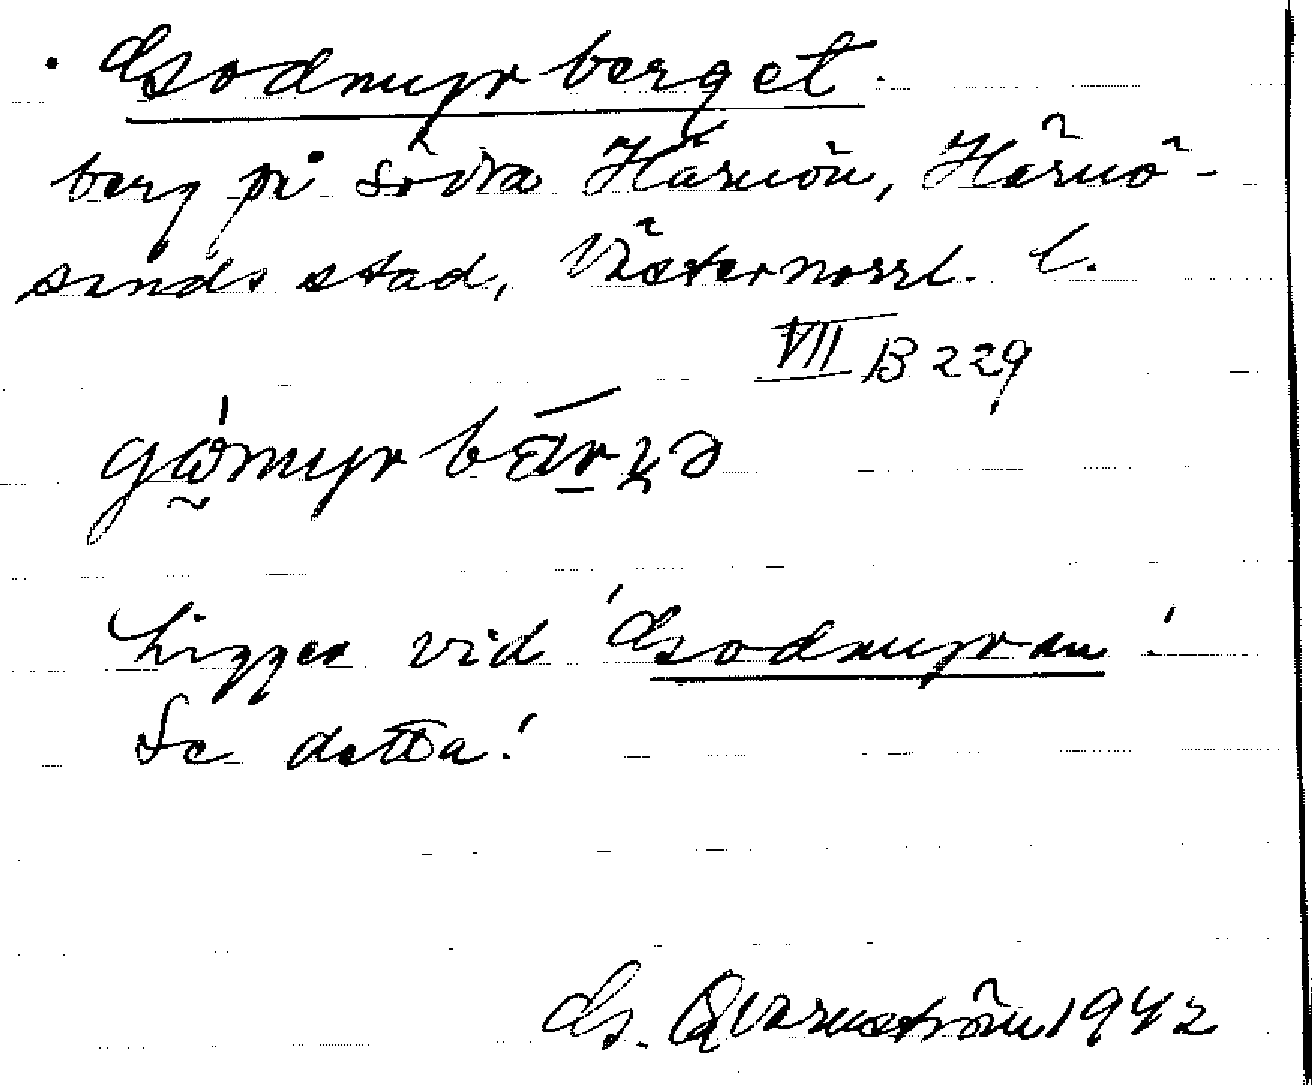 Godmyrberget
berg på södra Härnön, Härnö-
sands stad, Västernorrl. l.
VII B 229
Ligger vid 'Godmyran'.
Se detta!
G. Qvarnström 1942